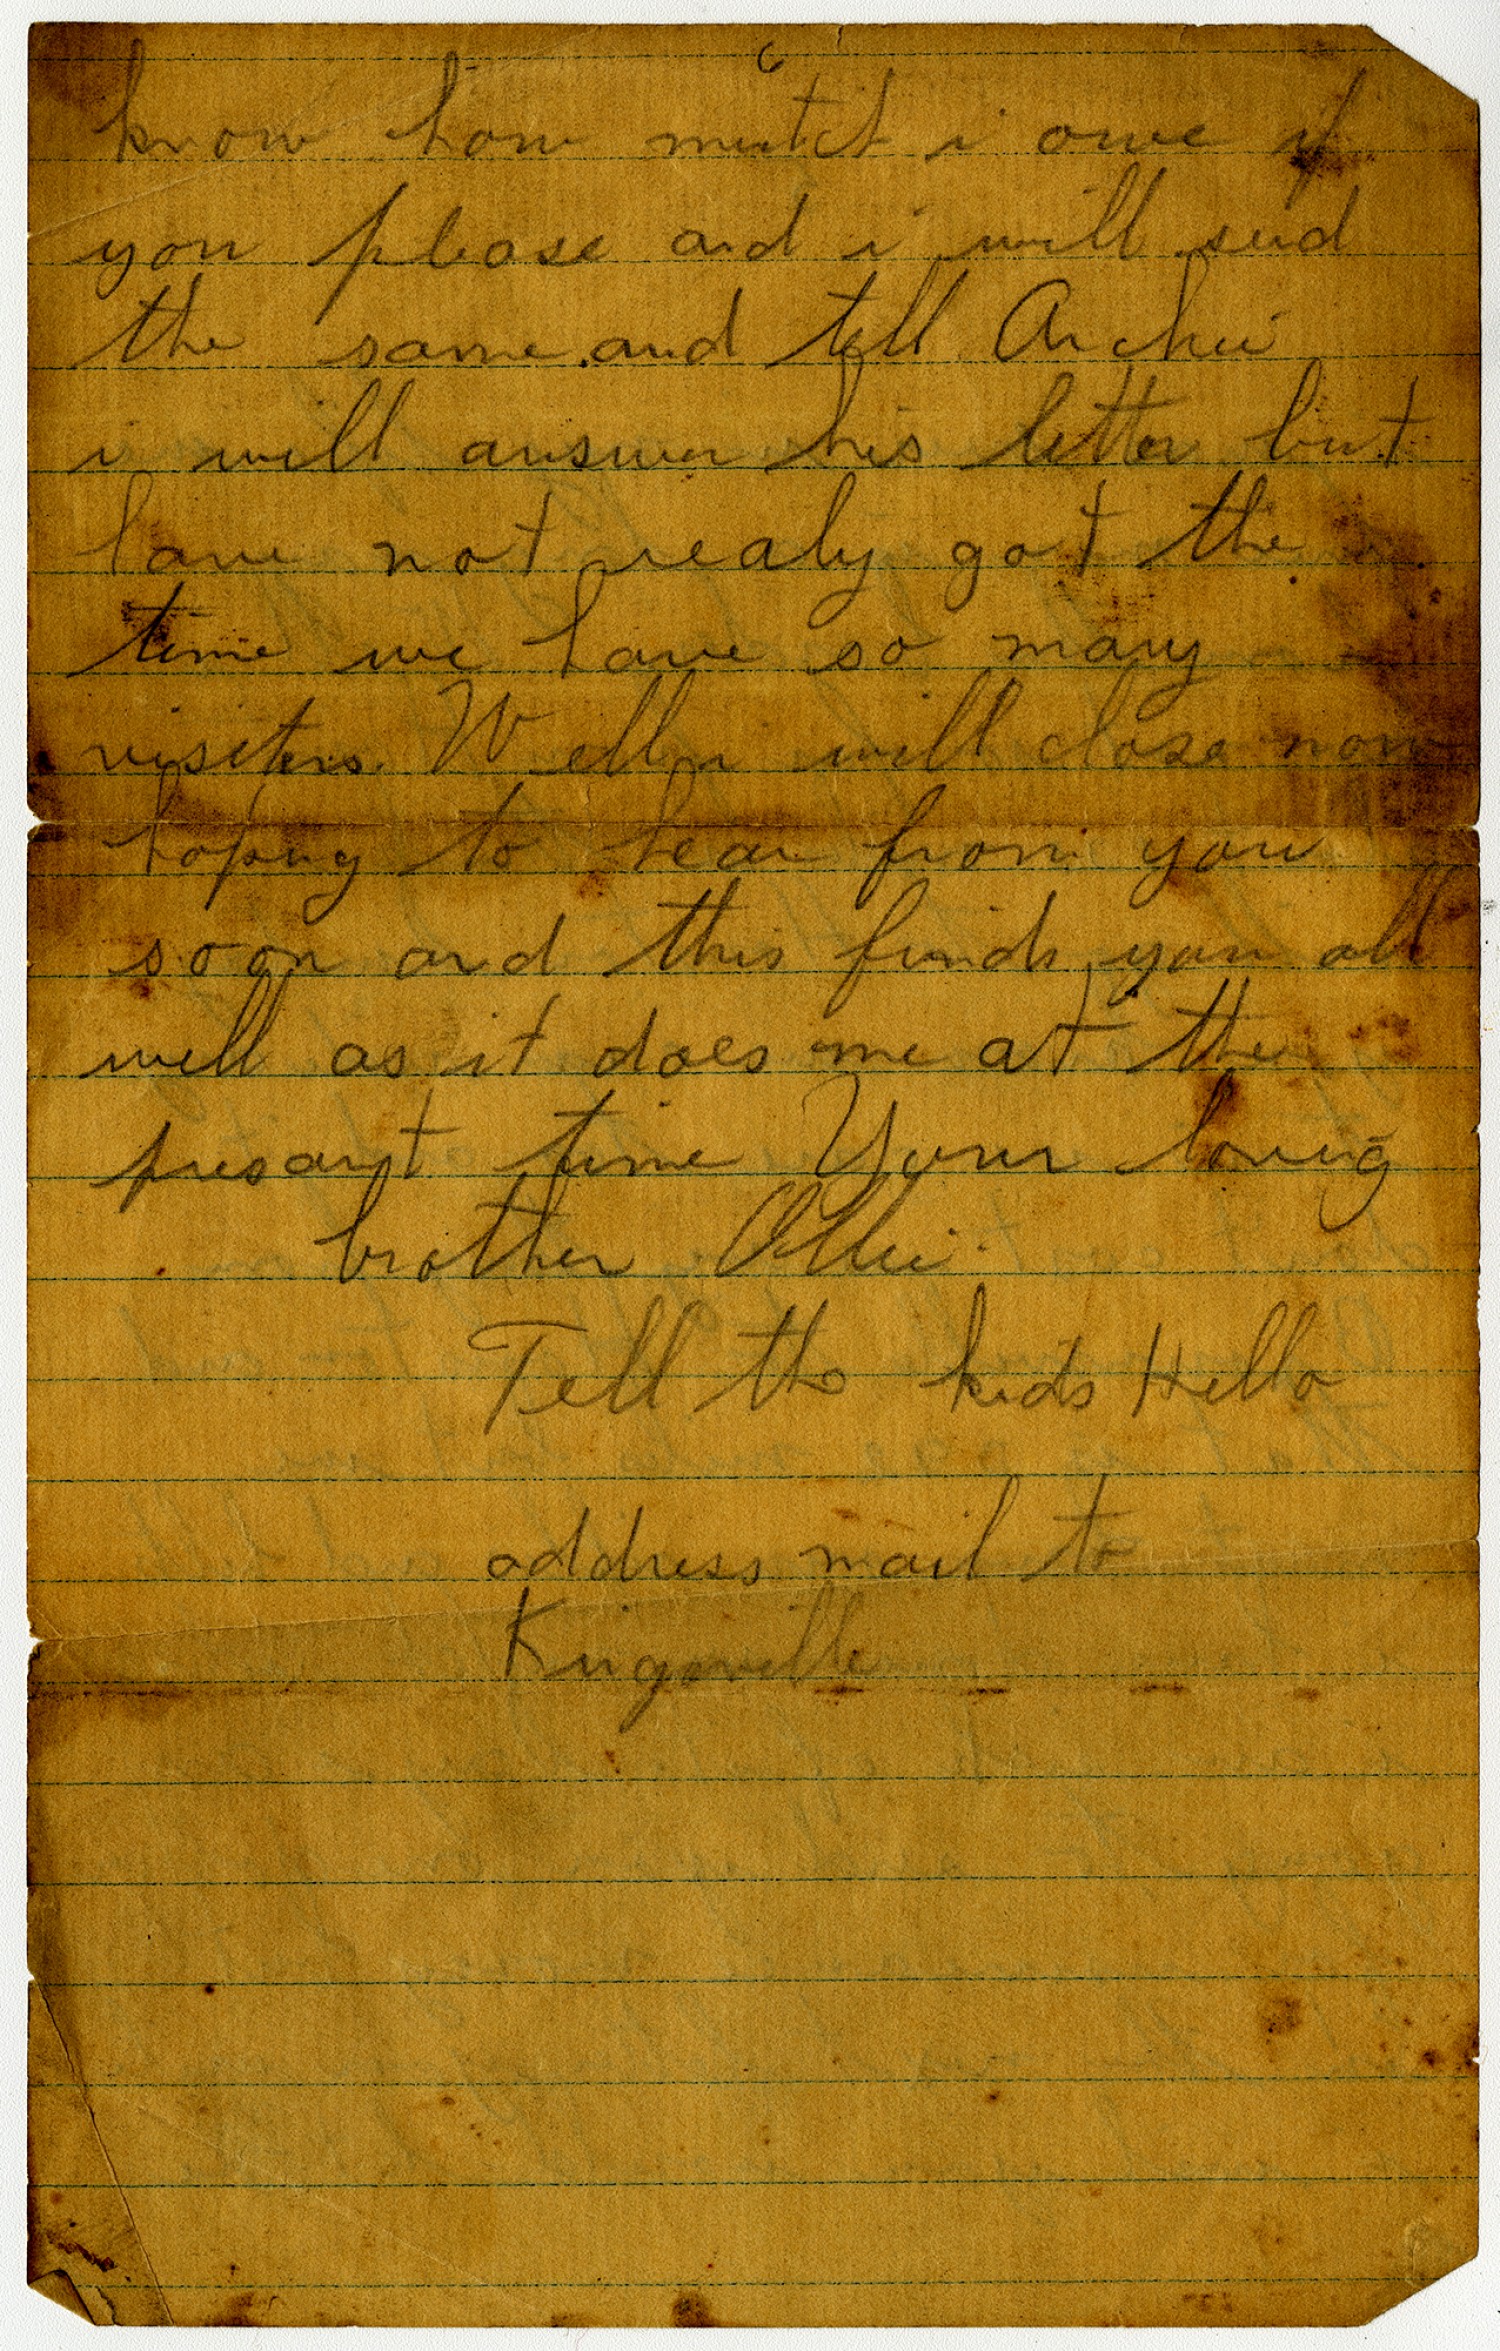 6
know how mutch i owe if
you please and i will send
the same. and tell Archie
i will answer his letter but
have not realy got the
time we have so many
visiters. Well i will close now
hoping to hear from you
soon and this finds you all
well as it does me at the
presant time Your loving
brother Ollie.
Tell the kids Hello
address mail to
Kingsville